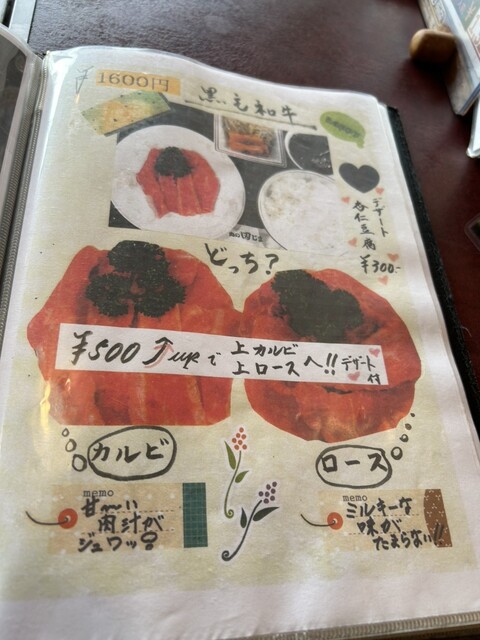 ¥1600円
黒毛和牛
デザート
杏仁豆腐
¥300-
どっち?
¥500 upで 上カルビ
上ロースへ!! デザート付
カルビ
ロース
memo
甘〜い
肉汁が
ジュワッ
memo
ミルキーな
味が
たまらない!!